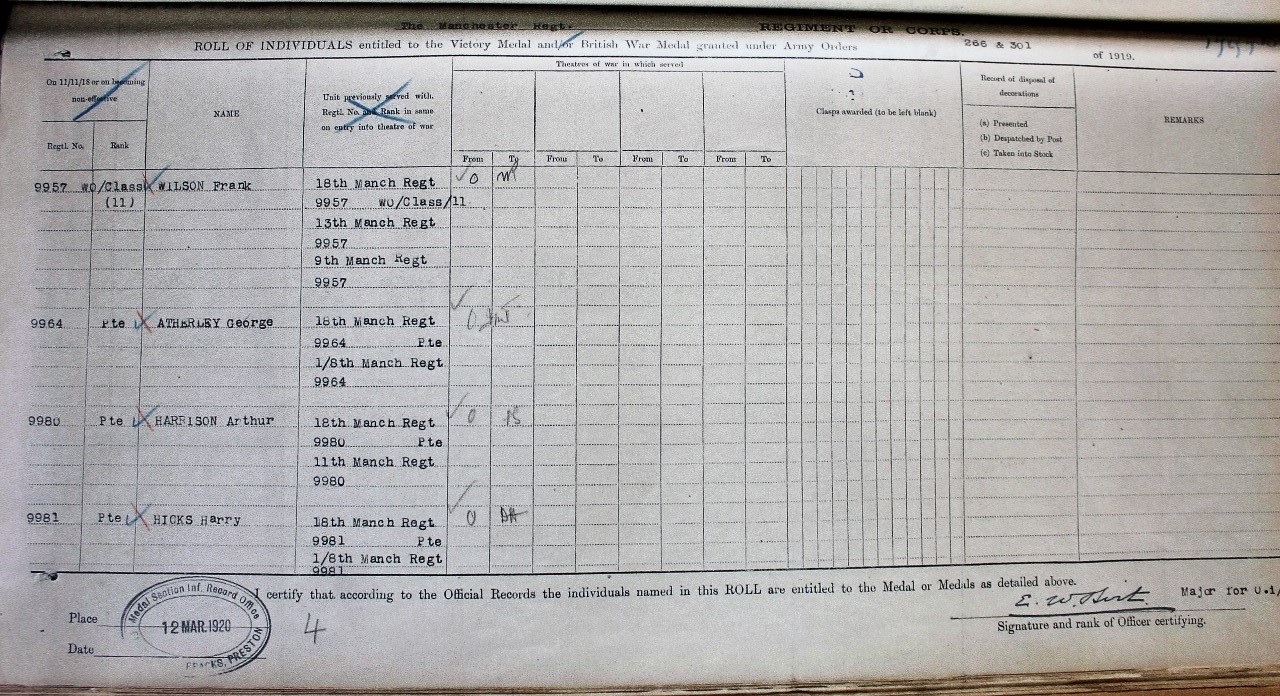 The Manchester Regt. REGIMENT OR CORPS.
ROLL OF INDIVIDUALS entitled to the Victory Medal and/or British War Medal granted under Army Orders 266 & 301 of 1919.
On 11/11/18 or on becoming non-effective
Regtl. No. Rank
NAME
Unit previously served with.
Regtl. No. and Rank in same
on entry into theatre of war
Theatres of war in which served
From To From To From To From To
Clasps awarded (to be left blank)
Record of disposal of
decorations
(a) Presented
(b) Despatched by Post
(c) Taken into Stock
REMARKS
9957 WO/Class WILSON Frank 18th Manch Regt O
(11) 9957 WO/Class/11
13th Manch Regt
9957
9th Manch Regt
9957
9964 Pte ATHERLEY George 18th Manch Regt O
9964 Pte
1/8th Manch Regt
9964
9980 Pte HARRISON Arthur 18th Manch Regt O
9980 Pte
11th Manch Regt
9980
9981 Pte HICKS Harry 18th Manch Regt O
9981 Pte
1/8th Manch Regt
9981
I certify that according to the Official Records the individuals named in this ROLL are entitled to the Medal or Medals as detailed above.
Place
Date
Medal Section Inf. Record Office
12 MAR.1920
PRESTON
4
E. W. Major for
Signature and rank of Officer certifying.